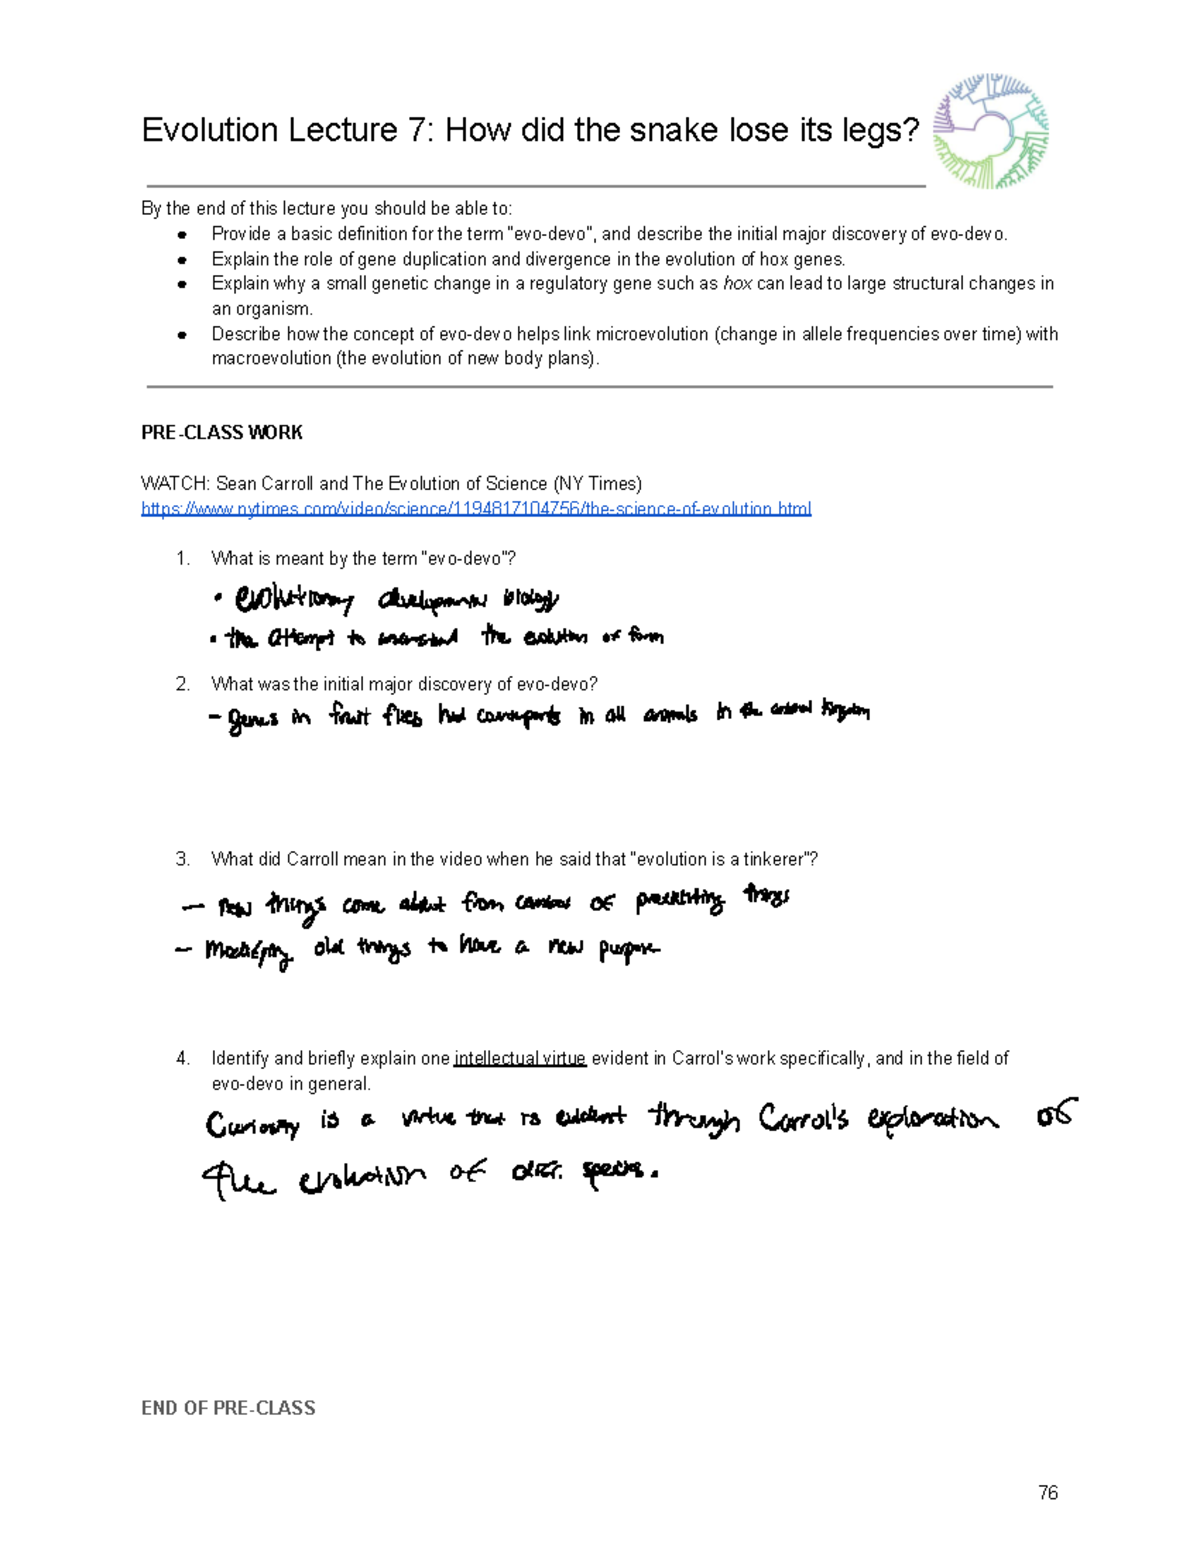 Evolution Lecture 7: How did the snake lose its legs?
By the end of this lecture you should be able to:
● Provide a basic definition for the term "evo-devo", and describe the initial major discovery of evo-devo.
● Explain the role of gene duplication and divergence in the evolution of hox genes.
● Explain why a small genetic change in a regulatory gene such as hox can lead to large structural changes in
an organism.
● Describe how the concept of evo-devo helps link microevolution (change in allele frequencies over time) with
macroevolution (the evolution of new body plans).
PRE-CLASS WORK
WATCH: Sean Carroll and The Evolution of Science (NY Times)
https://www.nytimes.com/video/science/1194817104756/the-science-of-evolution.html
1. What is meant by the term "evo-devo"?
• evolutionary developmental biology
• the attempt to understand the evolution of form
2. What was the initial major discovery of evo-devo?
- genes in fruit flies had counterparts in all animals in the animal kingdom
3. What did Carroll mean in the video when he said that "evolution is a tinkerer"?
- new things come about from combos of preexisting things
- modifying old things to have a new purpose
4. Identify and briefly explain one intellectual virtue evident in Carrol's work specifically, and in the field of
evo-devo in general.
Curiosity is a virtue that is evident through Carrol's exploration of
the evolution of diff. species.
END OF PRE-CLASS
76